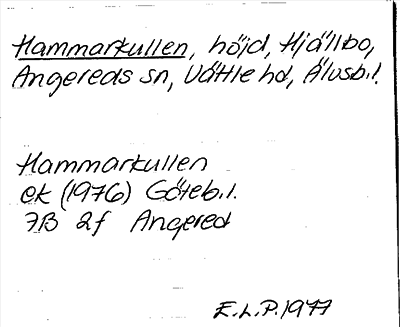 Hammarkullen, höjd, Hjällbo,
Angereds sn, Vättle hd, Älvsb.l.
Hammarkullen
ek (1976) Göteb.l.
7B 2f Angered
E.L.P. 1977